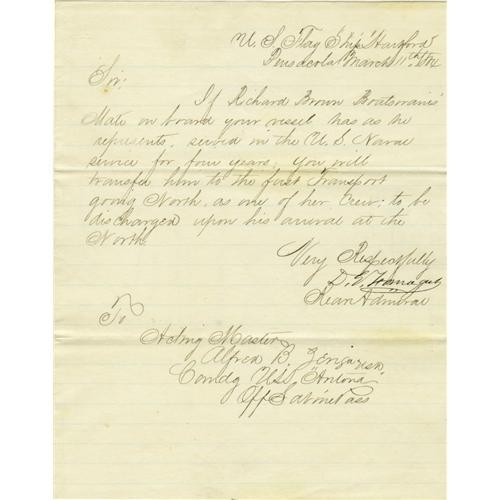 U. S. Flag Ship "Hartford"
Pensacola March 11th 1864
Sir:
If Richard Brown Boatswains
Mate on board your vessel has as he
represents, served in the U. S. Naval
service for four years; You will
transfer him to the first Transport
going North, as one of her Crew; to be
discharged upon his arrival at the
North.
Very Respectfully
D. G. Farragut
Rear Admiral
To
Acting Master
Alfred B.
Comdg U.S.S. "Antona"
Off Sabine Pass